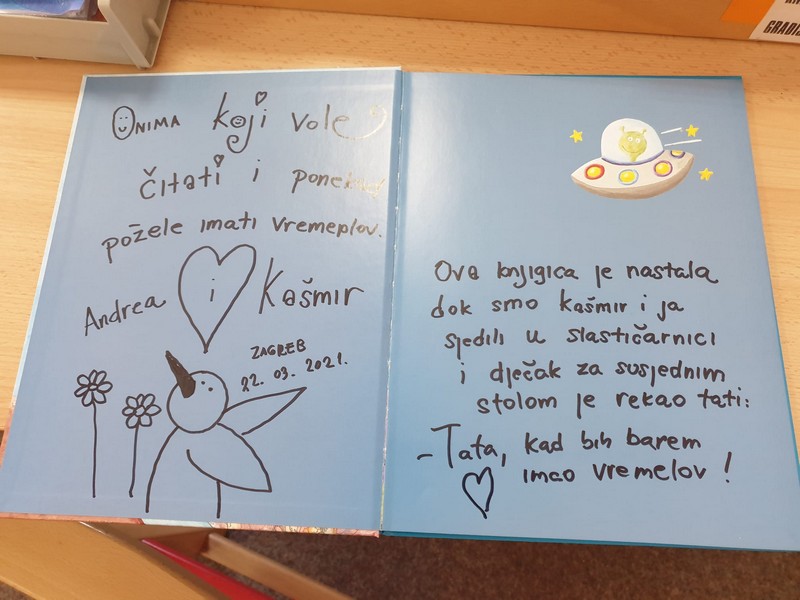 ONIMA koji vole
čitati i
požele imati vremeplov.
Andrea i Kašmir
ZAGREB
22. 03. 2021.
Ova knjigica je nastala
dok smo Kašmir i ja
sjedili u slastičarnici
i dječak za susjednim
stolom je rekao tati:
- Tata, kad bih barem
imao vremelov !